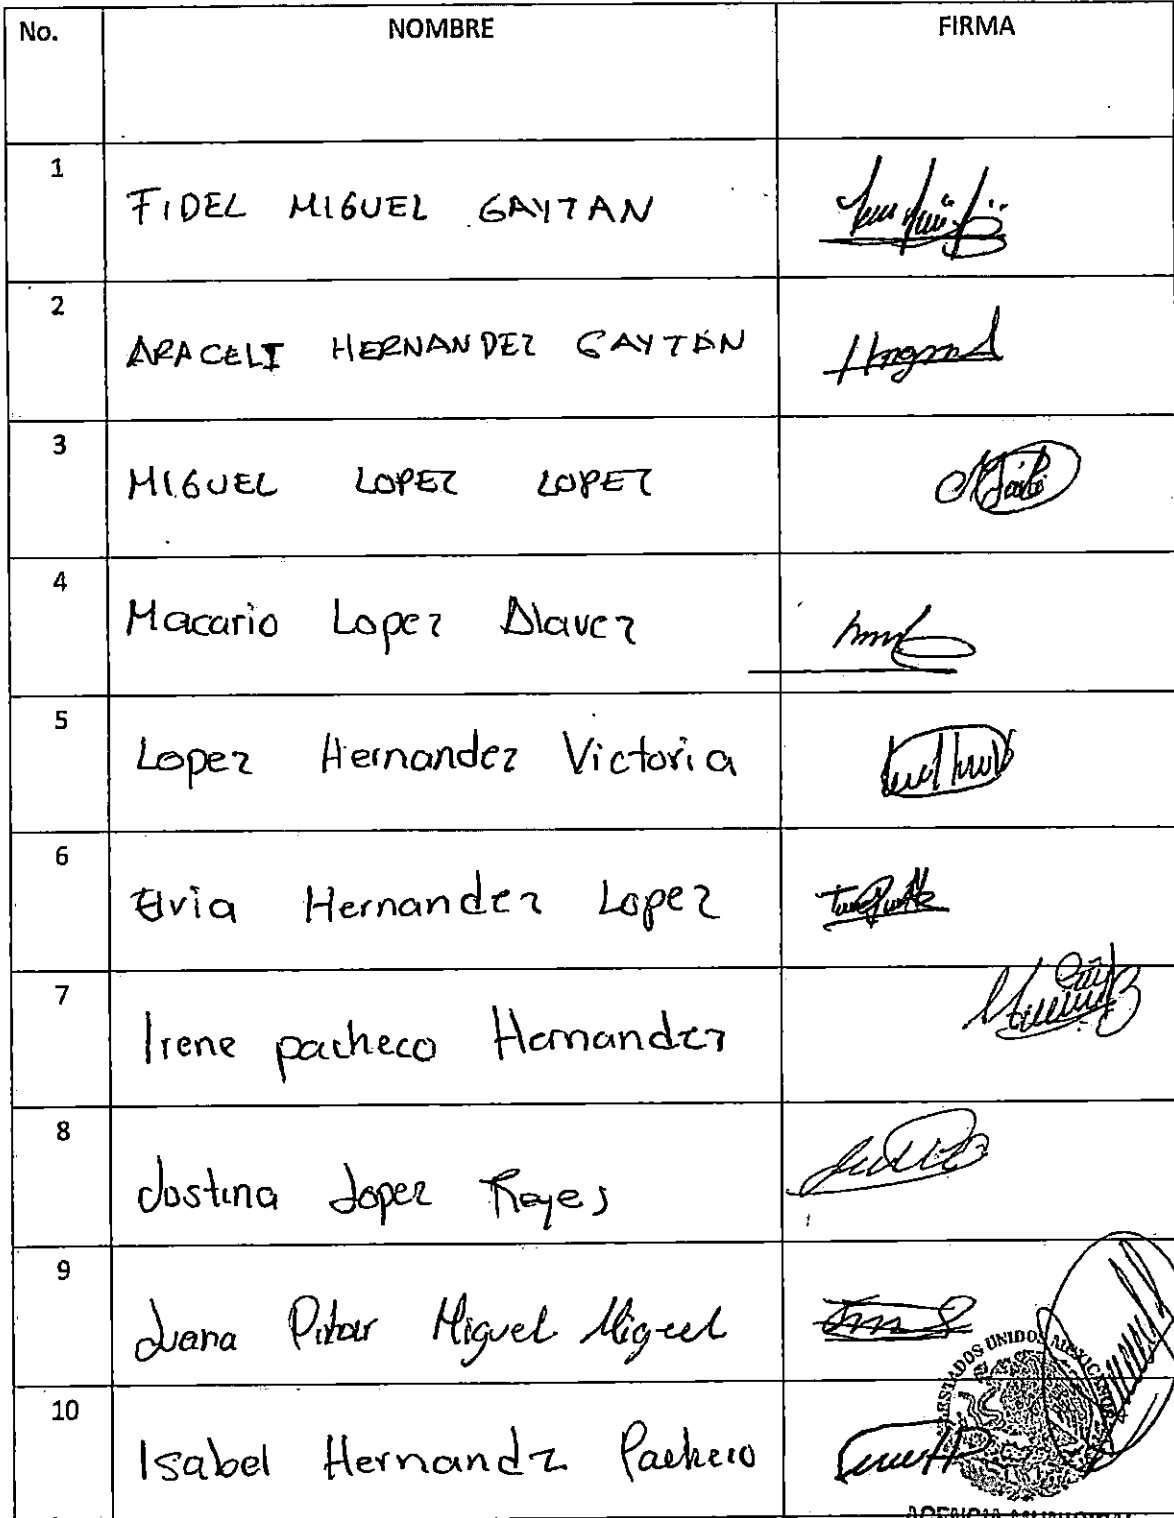 No. NOMBRE FIRMA
1 FIDEL MIGUEL GAYTAN
2 ARACELI HERNANDEZ GAYTÁN
3 MIGUEL LOPEZ LOPEZ
4 Macario Lopez Alavez
5 Lopez Hernandez Victoria
6 Hernandez Lopez
7 Irene pacheco Hernandez
8 Jostina Lopez Reyes
9 Juana Miguel Miguel
10 Isabel Hernandz Pacheco
ESTADOS UNIDOS MEXICANOS
AGENCIA MUNICIPAL